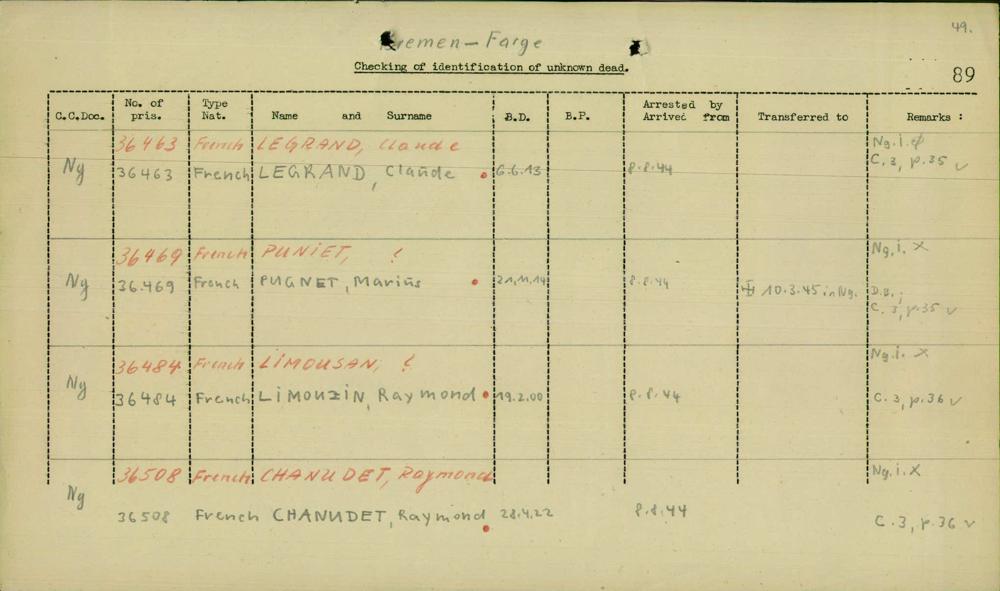 49.
Bremen – Farge
Checking of identification of unknown dead.
89
C.C.Doc. No. of pris. Type Nat. Name and Surname B.D. B.P. Arrested by Arrived from Transferred to Remarks :
36463 French LEGRAND, Claude Ng.i.
Ng 36463 French LEGRAND, Claude 6.6.13 8.8.44 C.3, p.35 ✓
36469 French PUNIET, ? Ng.i. X
Ng 36.469 French PUGNET, Marius 21.11.14 8.8.44 10.3.45 in Ng. D.B.;
C.3, p.35 ✓
36484 French LIMOUSAN, ? Ng.i. X
Ng 36484 French LIMOUZIN, Raymond 19.2.00 8.8.44 C.3, p.36 ✓
36508 French CHANUDET, Raymond Ng.i. X
Ng 36508 French CHANUDET, Raymond 28.4.22 8.8.44 C.3, p.36 ✓